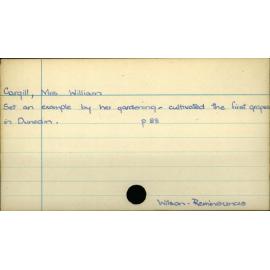 Cargill, Mrs William
Set an example by her gardening - cultivated the first grapes
in Dunedin. p 88
Wilson - Reminiscences